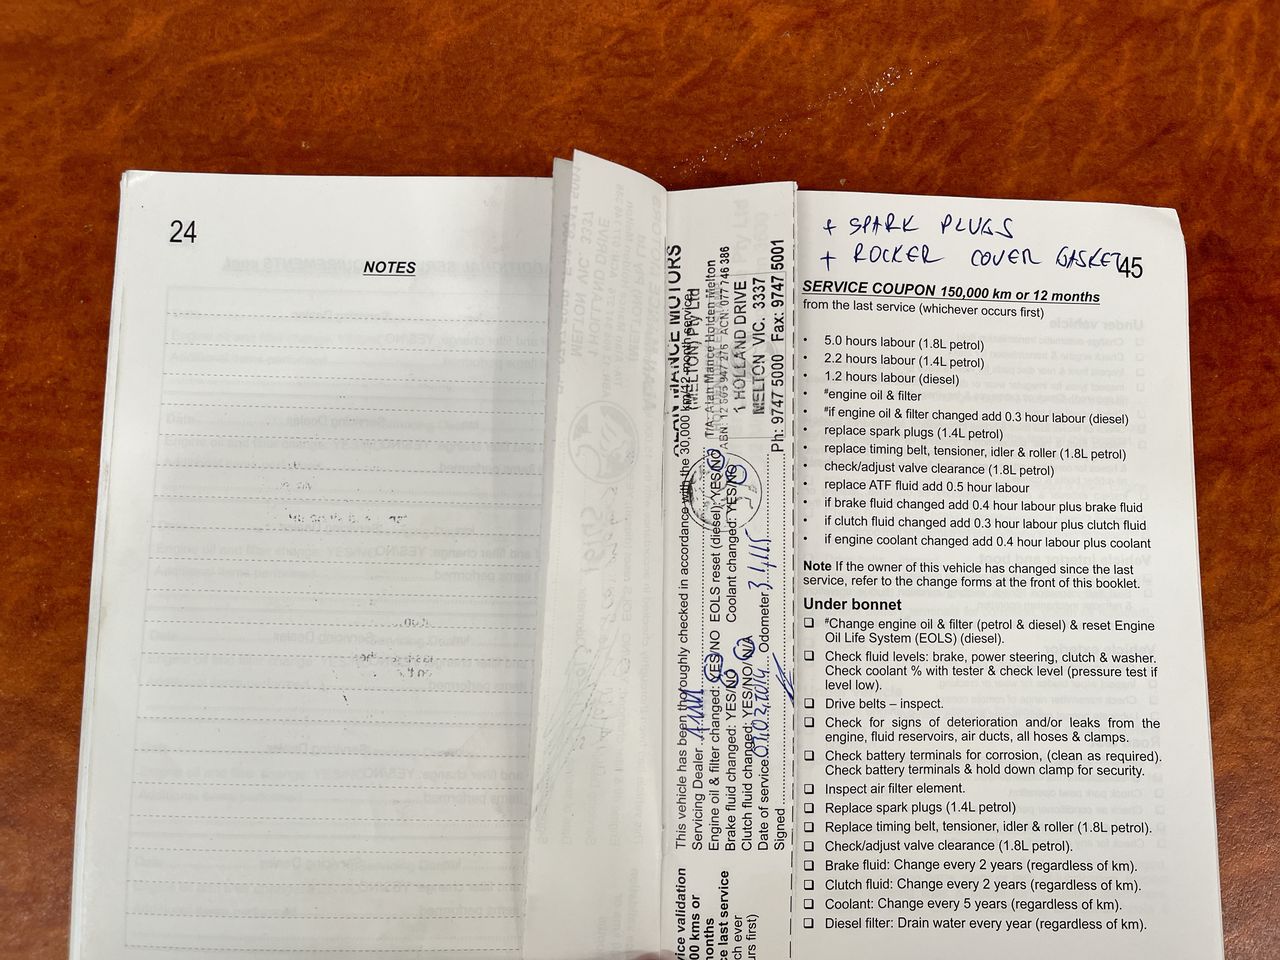 24
NOTES
+ SPARK PLUGS
+ ROCKER COVER GASKET
45
SERVICE COUPON 150,000 km or 12 months
from the last service (whichever occurs first)
• 5.0 hours labour (1.8L petrol)
• 2.2 hours labour (1.4L petrol)
• 1.2 hours labour (diesel)
• #engine oil & filter
• #if engine oil & filter changed add 0.3 hour labour (diesel)
• replace spark plugs (1.4L petrol)
• replace timing belt, tensioner, idler & roller (1.8L petrol)
• check/adjust valve clearance (1.8L petrol)
• replace ATF fluid add 0.5 hour labour
• if brake fluid changed add 0.4 hour labour plus brake fluid
• if clutch fluid changed add 0.3 hour labour plus clutch fluid
• if engine coolant changed add 0.4 hour labour plus coolant
Note If the owner of this vehicle has changed since the last
service, refer to the change forms at the front of this booklet.
Under bonnet
❑ #Change engine oil & filter (petrol & diesel) & reset Engine
Oil Life System (EOLS) (diesel).
❑ Check fluid levels: brake, power steering, clutch & washer.
Check coolant % with tester & check level (pressure test if
level low).
❑ Drive belts – inspect.
❑ Check for signs of deterioration and/or leaks from the
engine, fluid reservoirs, air ducts, all hoses & clamps.
❑ Check battery terminals for corrosion, (clean as required).
Check battery terminals & hold down clamp for security.
❑ Inspect air filter element.
❑ Replace spark plugs (1.4L petrol)
❑ Replace timing belt, tensioner, idler & roller (1.8L petrol).
❑ Check/adjust valve clearance (1.8L petrol).
❑ Brake fluid: Change every 2 years (regardless of km).
❑ Clutch fluid: Change every 2 years (regardless of km).
❑ Coolant: Change every 5 years (regardless of km).
❑ Diesel filter: Drain water every year (regardless of km).
This vehicle has been thoroughly checked in accordance with the 30,000 km/12 month service.
Servicing Dealer
Engine oil & filter changed: YES/NO EOLS reset (diesel): YES/NO
Brake fluid changed: YES/NO Coolant changed: YES/NO
Clutch fluid changed: YES/NO/N/A
Date of service Odometer
Signed
MOTORS
(MELTON) Pty Ltd
T/A: Alan Mance Holden Melton
ACN: 077 746 386
1 HOLLAND DRIVE
MELTON VIC. 3337
Ph: 9747 5000 Fax: 9747 5001